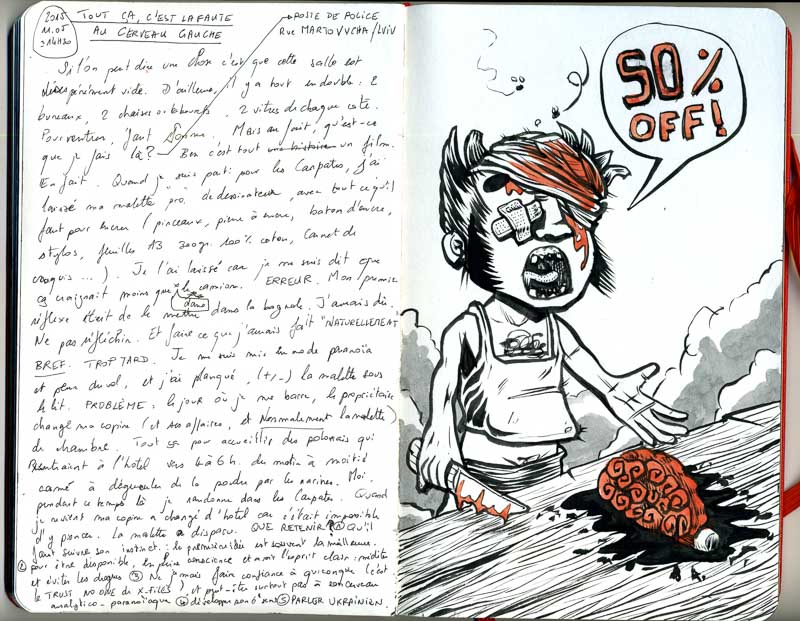 2015
11.05
21H30
TOUT ÇA, C'EST LA FAUTE
AU CERVEAU GAUCHE
POSTE DE POLICE
RUE MARTOVYCHA/LVIV
Si l'on peut dire une chose c'est que cette salle est
désespérément vide. D'ailleurs, il y a tout en double : 2
bureaux, 2 chaises, 2 vitres de chaque coté.
Mais au fait, qu'est-ce
que je fais là ? Ben c'est tout une histoire un film.
En fait. Quand je suis parti pour les Carpates, j'ai
laissé ma malette "pro" de dessinateur, avec tout ce qu'il
faut pour encrer (pinceaux, pierre à encre, baton d'encre,
stylos, feuilles A3 300gr. 100% coton, Carnet de
croquis...). Je l'ai laissé car je me suis dit que
ça craignait moins que le camion. ERREUR. Mon premier
réflexe était de le mettre dans la bagnole. J'aurais dû.
Ne pas réfléchir. Et faire ce que j'aurais fait "NATURELLEMENT"
BREF. TROP TARD. Je me suis mis en mode paranoïa
et peur du vol, et j'ai planqué, (+/-) la malette sous
le lit. PROBLÈME : le jour où je me barre, le propriétaire
change ma copine (et ses affaires, et NORMALEMENT la malette)
de chambre. Tout ça pour accueillir des polonais qui
rentraient à l'hôtel vers 4 à 6h. du matin à moitié
à dégueuler de la poudre par les narines. Moi,
pendant ce temps là je randonne dans les Carpates. Quand
je reviens ma copine a changé d'hôtel car c'était impossible
d'y pioncer. La malette a disparu. QUE RETENIR ? ① Qu'il
faut suivre son instinct : la première idée est souvent la meilleure.
② pour être disponible, en pleine conscience et avoir l'esprit clair : méditer
et éviter les drogues ③ Ne jamais faire confiance à quiconque (c'est
le TRUST NO ONE du X-FILES), et peut-être surtout pas à son cerveau
analytico-paranoïaque ④ développer son 6e sens ⑤ PARLER UKRAINIEN.
50%
OFF!